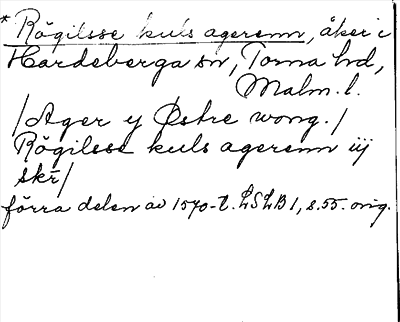 * Rögilsse kuls agerenn, åker i
Hardeberga sn, Torna hd,
Malm. l.
/Ager y Østre wong./
Rögilsse kuls agerenn iij
skr/
förra delen av 1570-t. LSLB 1, s. 55. orig.